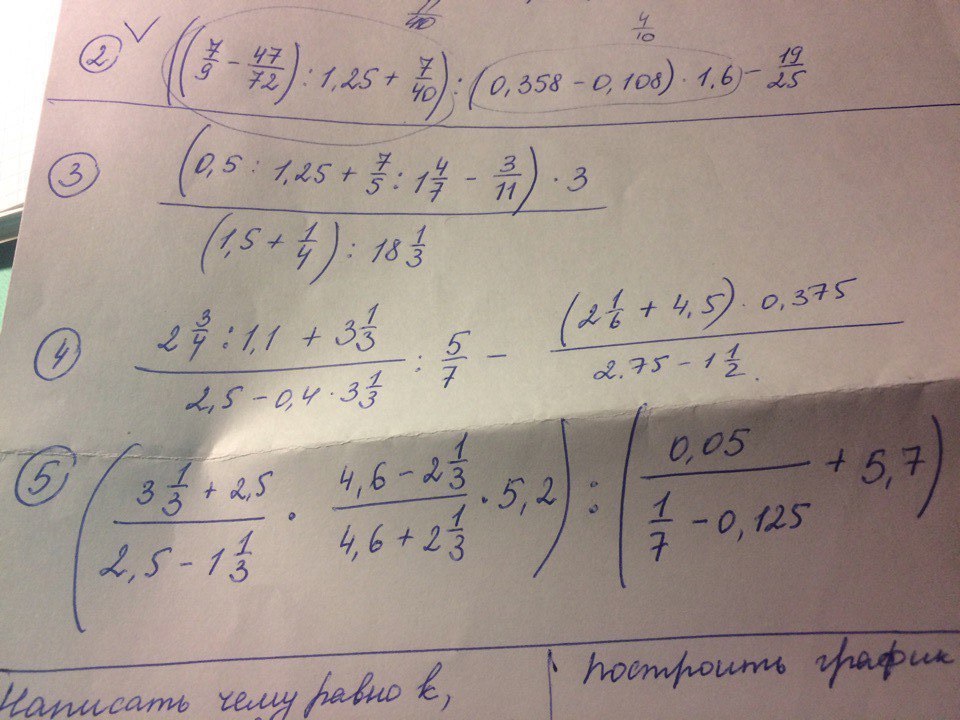 11/40 4/10
② ✓ ((7/9 - 47/72) : 1,25 + 7/40) : (0,358 - 0,108) · 1,6 - 19/25
③ (0,5 : 1,25 + 7/5 : 1 4/7 - 3/11) · 3
(1,5 + 1/4) : 18 1/3
④ 2 3/4 : 1,1 + 3 1/3 / 2,5 - 0,4 · 3 1/3 : 5/7 - (2 1/6 + 4,5) · 0,375 / 2.75 - 1 1/2.
⑤ (3 1/3 + 2,5 / 2,5 - 1 1/3 · 4,6 - 2 1/3 / 4,6 + 2 1/3 · 5,2) : (0,05 / 1/7 - 0,125 + 5,7)
Написать чему равно к,
построить график